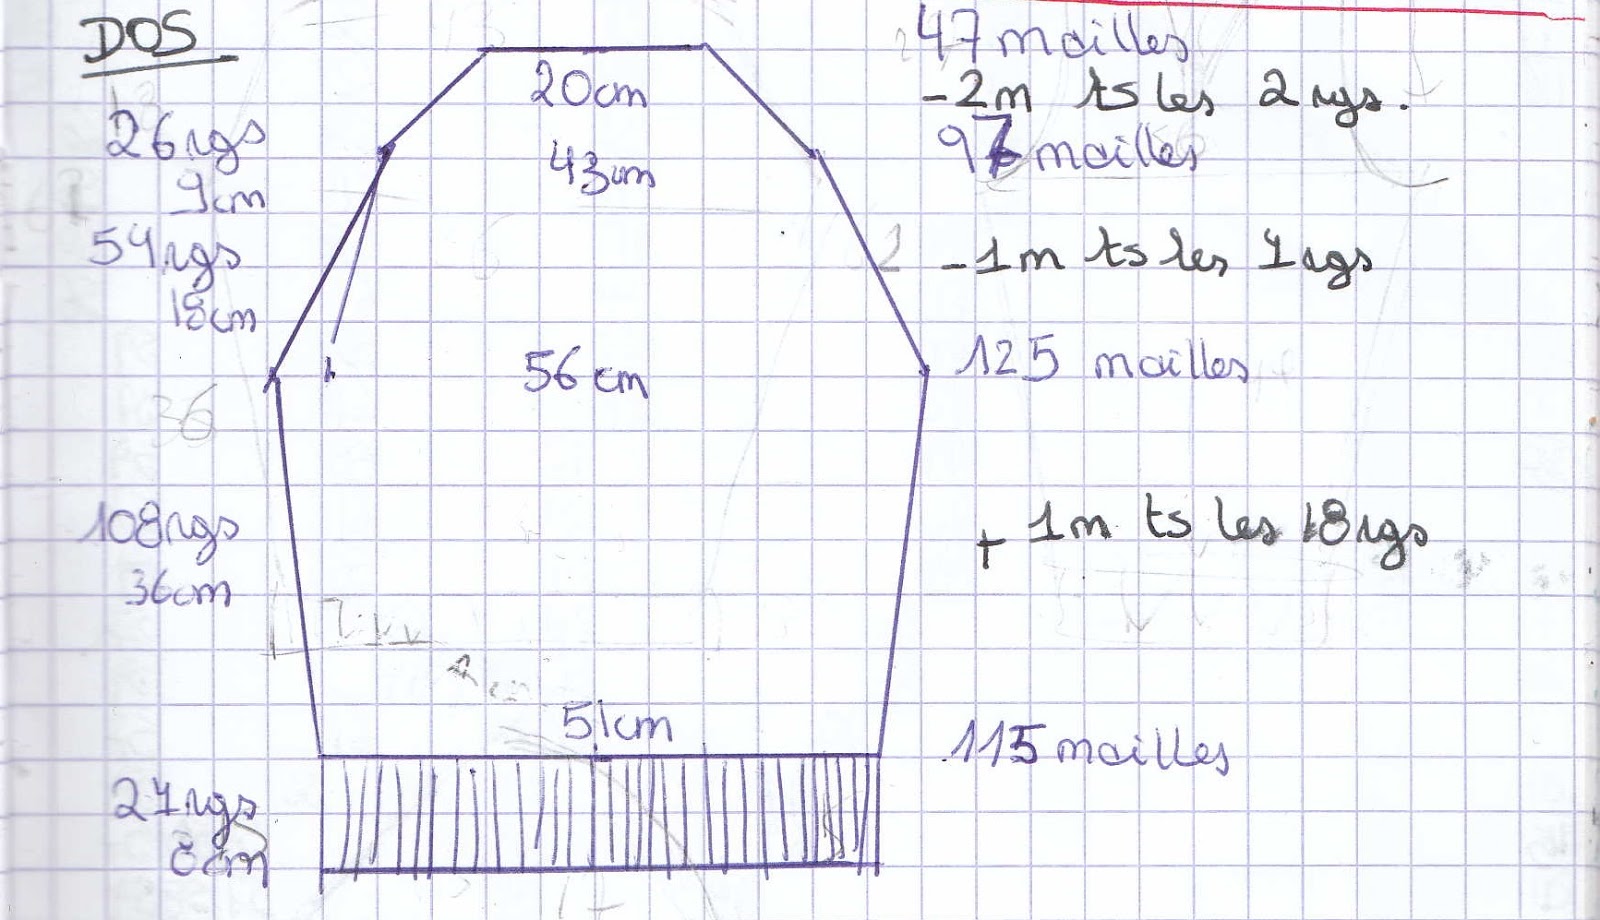 DOS
47 mailles
20cm
-2m ts les 2 rgs.
26rgs
9cm
43cm
mailles
54rgs
18cm
-1m ts les 7rgs
56cm
125 mailles
36
108rgs
36cm
+ 1m ts les 18rgs
51cm
115 mailles
27rgs
8cm